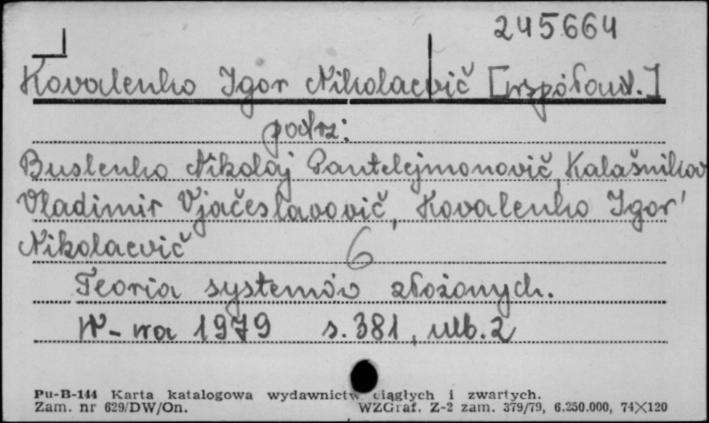 245664
Kovalenko Igor Nikolaevič [współaut.]
patrz:
Buslenko Nikolaj Pantelejmonovič, Kalašnikov
Vladimir Vjačeslavovič, Kovalenko Igor'
Nikolaevič 6
Teoria systemów złożonych.
W-wa 1979 s. 381, nlb. 2
Pu-B-144 Karta katalogowa wydawnictw ciągłych i zwartych.
Zam. nr 629/DW/On. WZGraf. Z-2 zam. 379/79, 6.250.000, 74×120